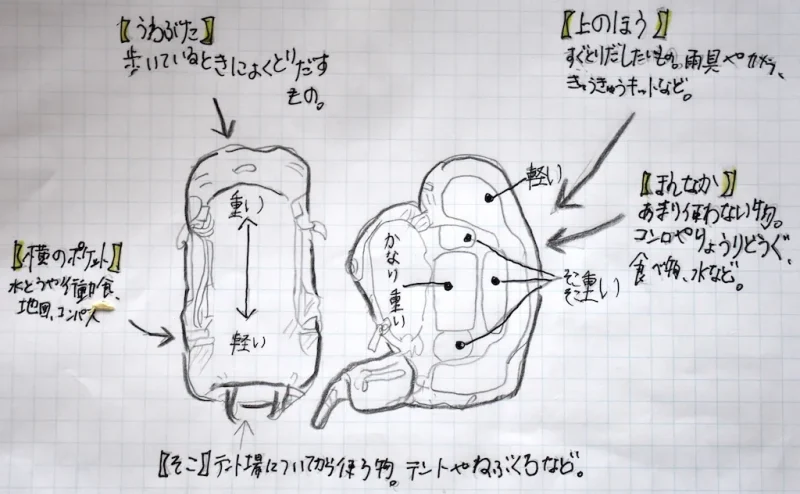 【うわぶた】
歩いているときによくとりだす
もの。
【上のほう】
すぐとりだしたいもの。雨具やカメラ、
きゅうきゅうキットなど。
重い
軽い
【横のポケット】
水とうや行動食、
地図、コンパス
かなり重い
軽い
そこそこ重い
【まんなか】
あまり使わない物。
コンロやりょうりどうぐ、
食べ物、水など。
【そこ】テント場についてから使う物。テントやねぶくろなど。